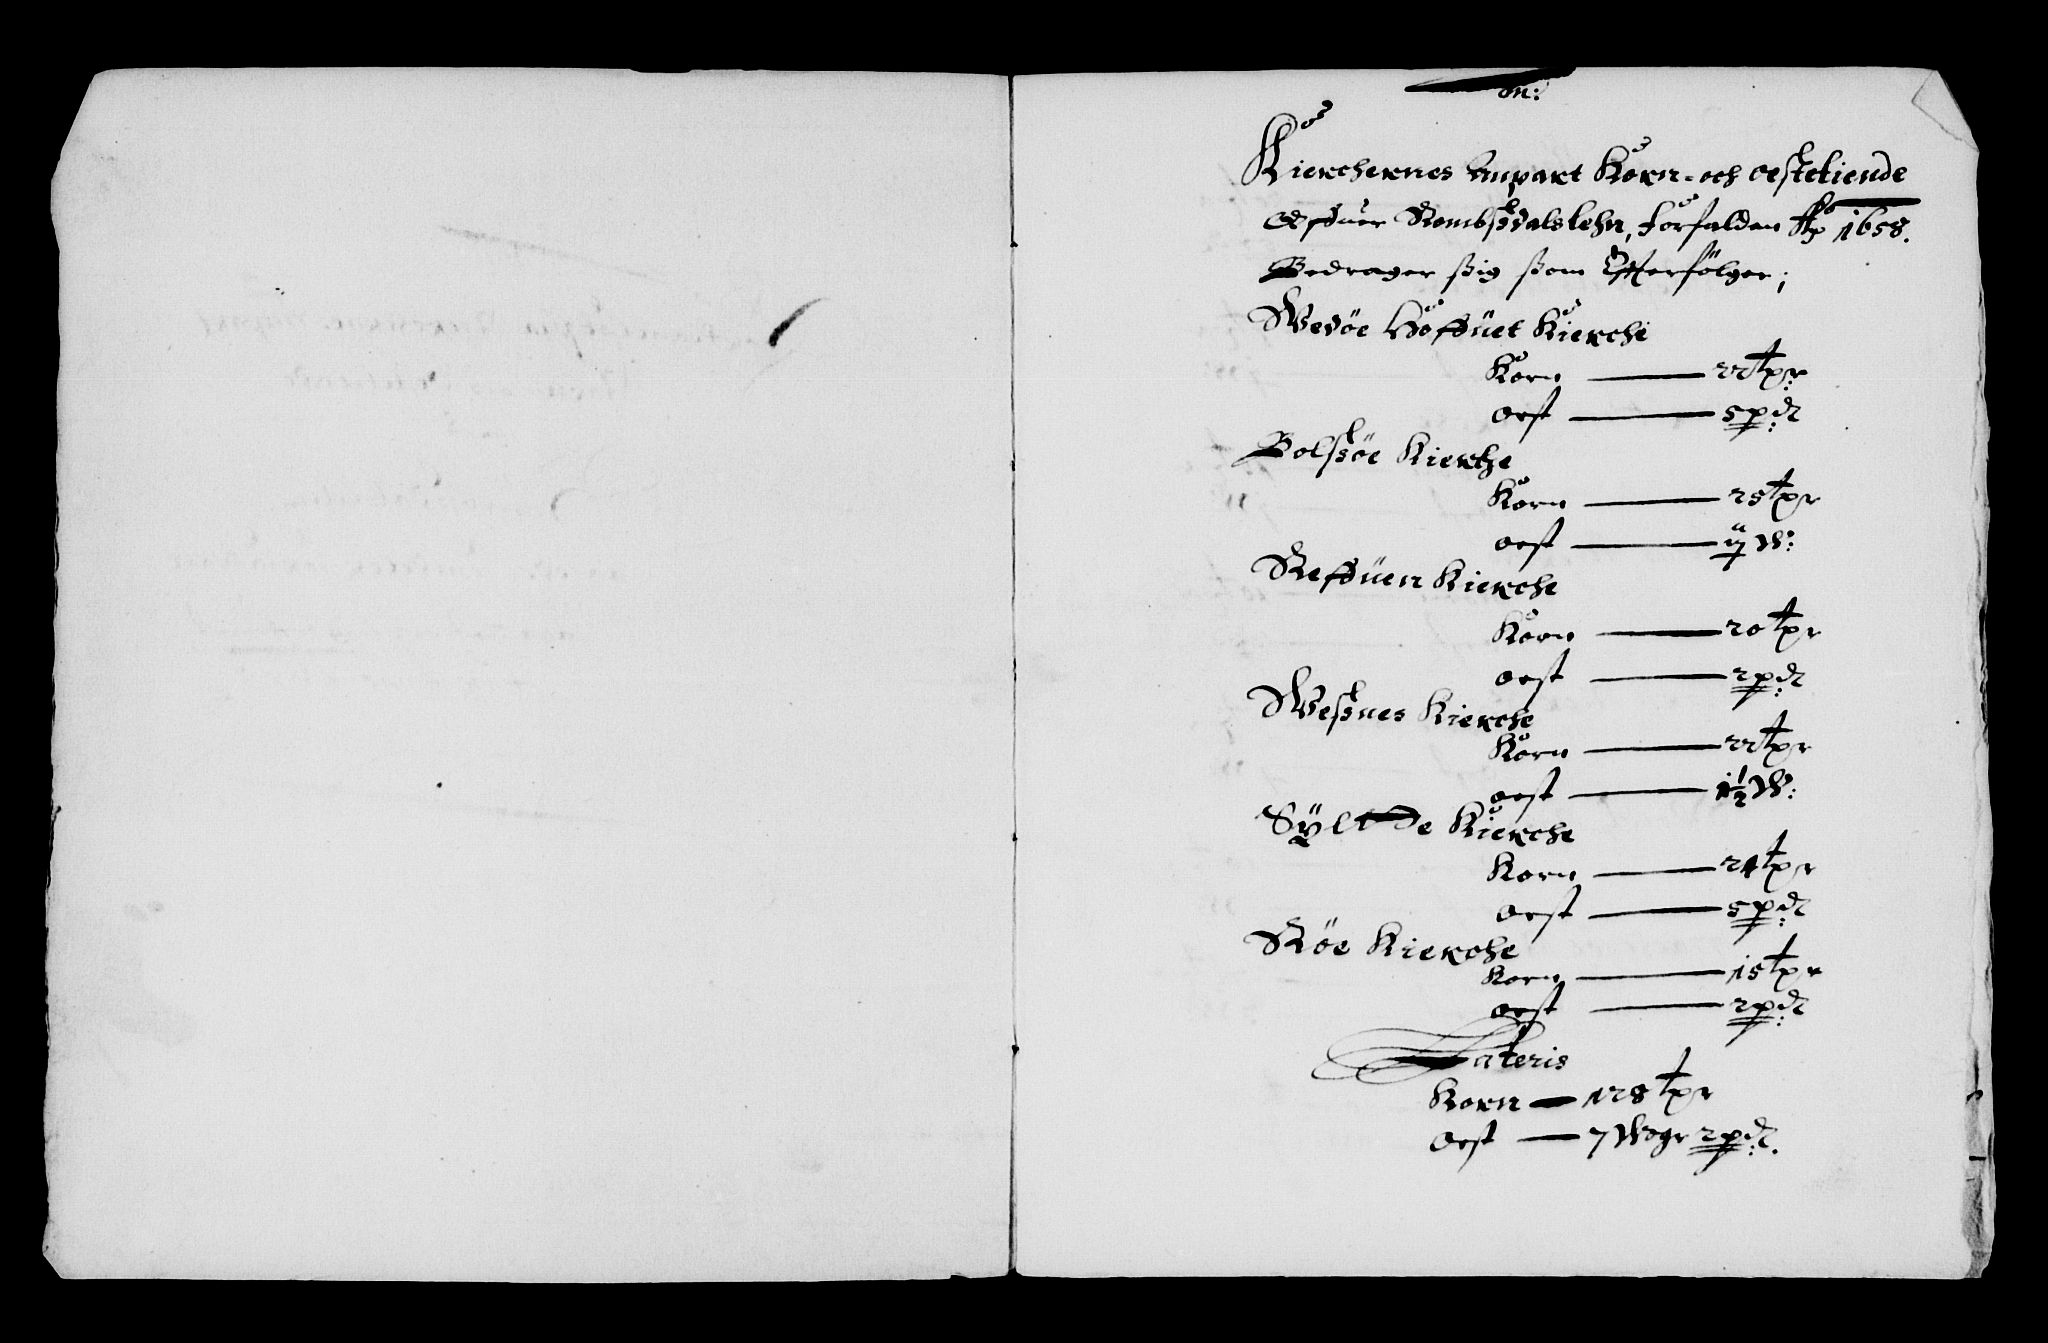 Kierchernes Anpart Korn- och ostetiende
offuer Rombsdals lehn, forfalden Ao 1658.
Bedrager sig som Efterfölger;
Wedöe Höffuet Kierche
Korn — 22 tpr:
ost — 5 pd:
Bolsöe Kierche
Korn — 25 tpr
ost — ij W:
Reffuen Kierche
Korn — 20 tpr
ost — 2 pd:
Wesnes Kierche
Korn — 22 tpr
ost — 1½ W:
Syltede Kierche
Korn — 24 tpr
ost — 5 pd:
Röe Kierche
Korn — 15 tpr
ost — 2 pd:
Lateris
Korn — 128 tpr
ost — 7 Wogr 2 pd:.